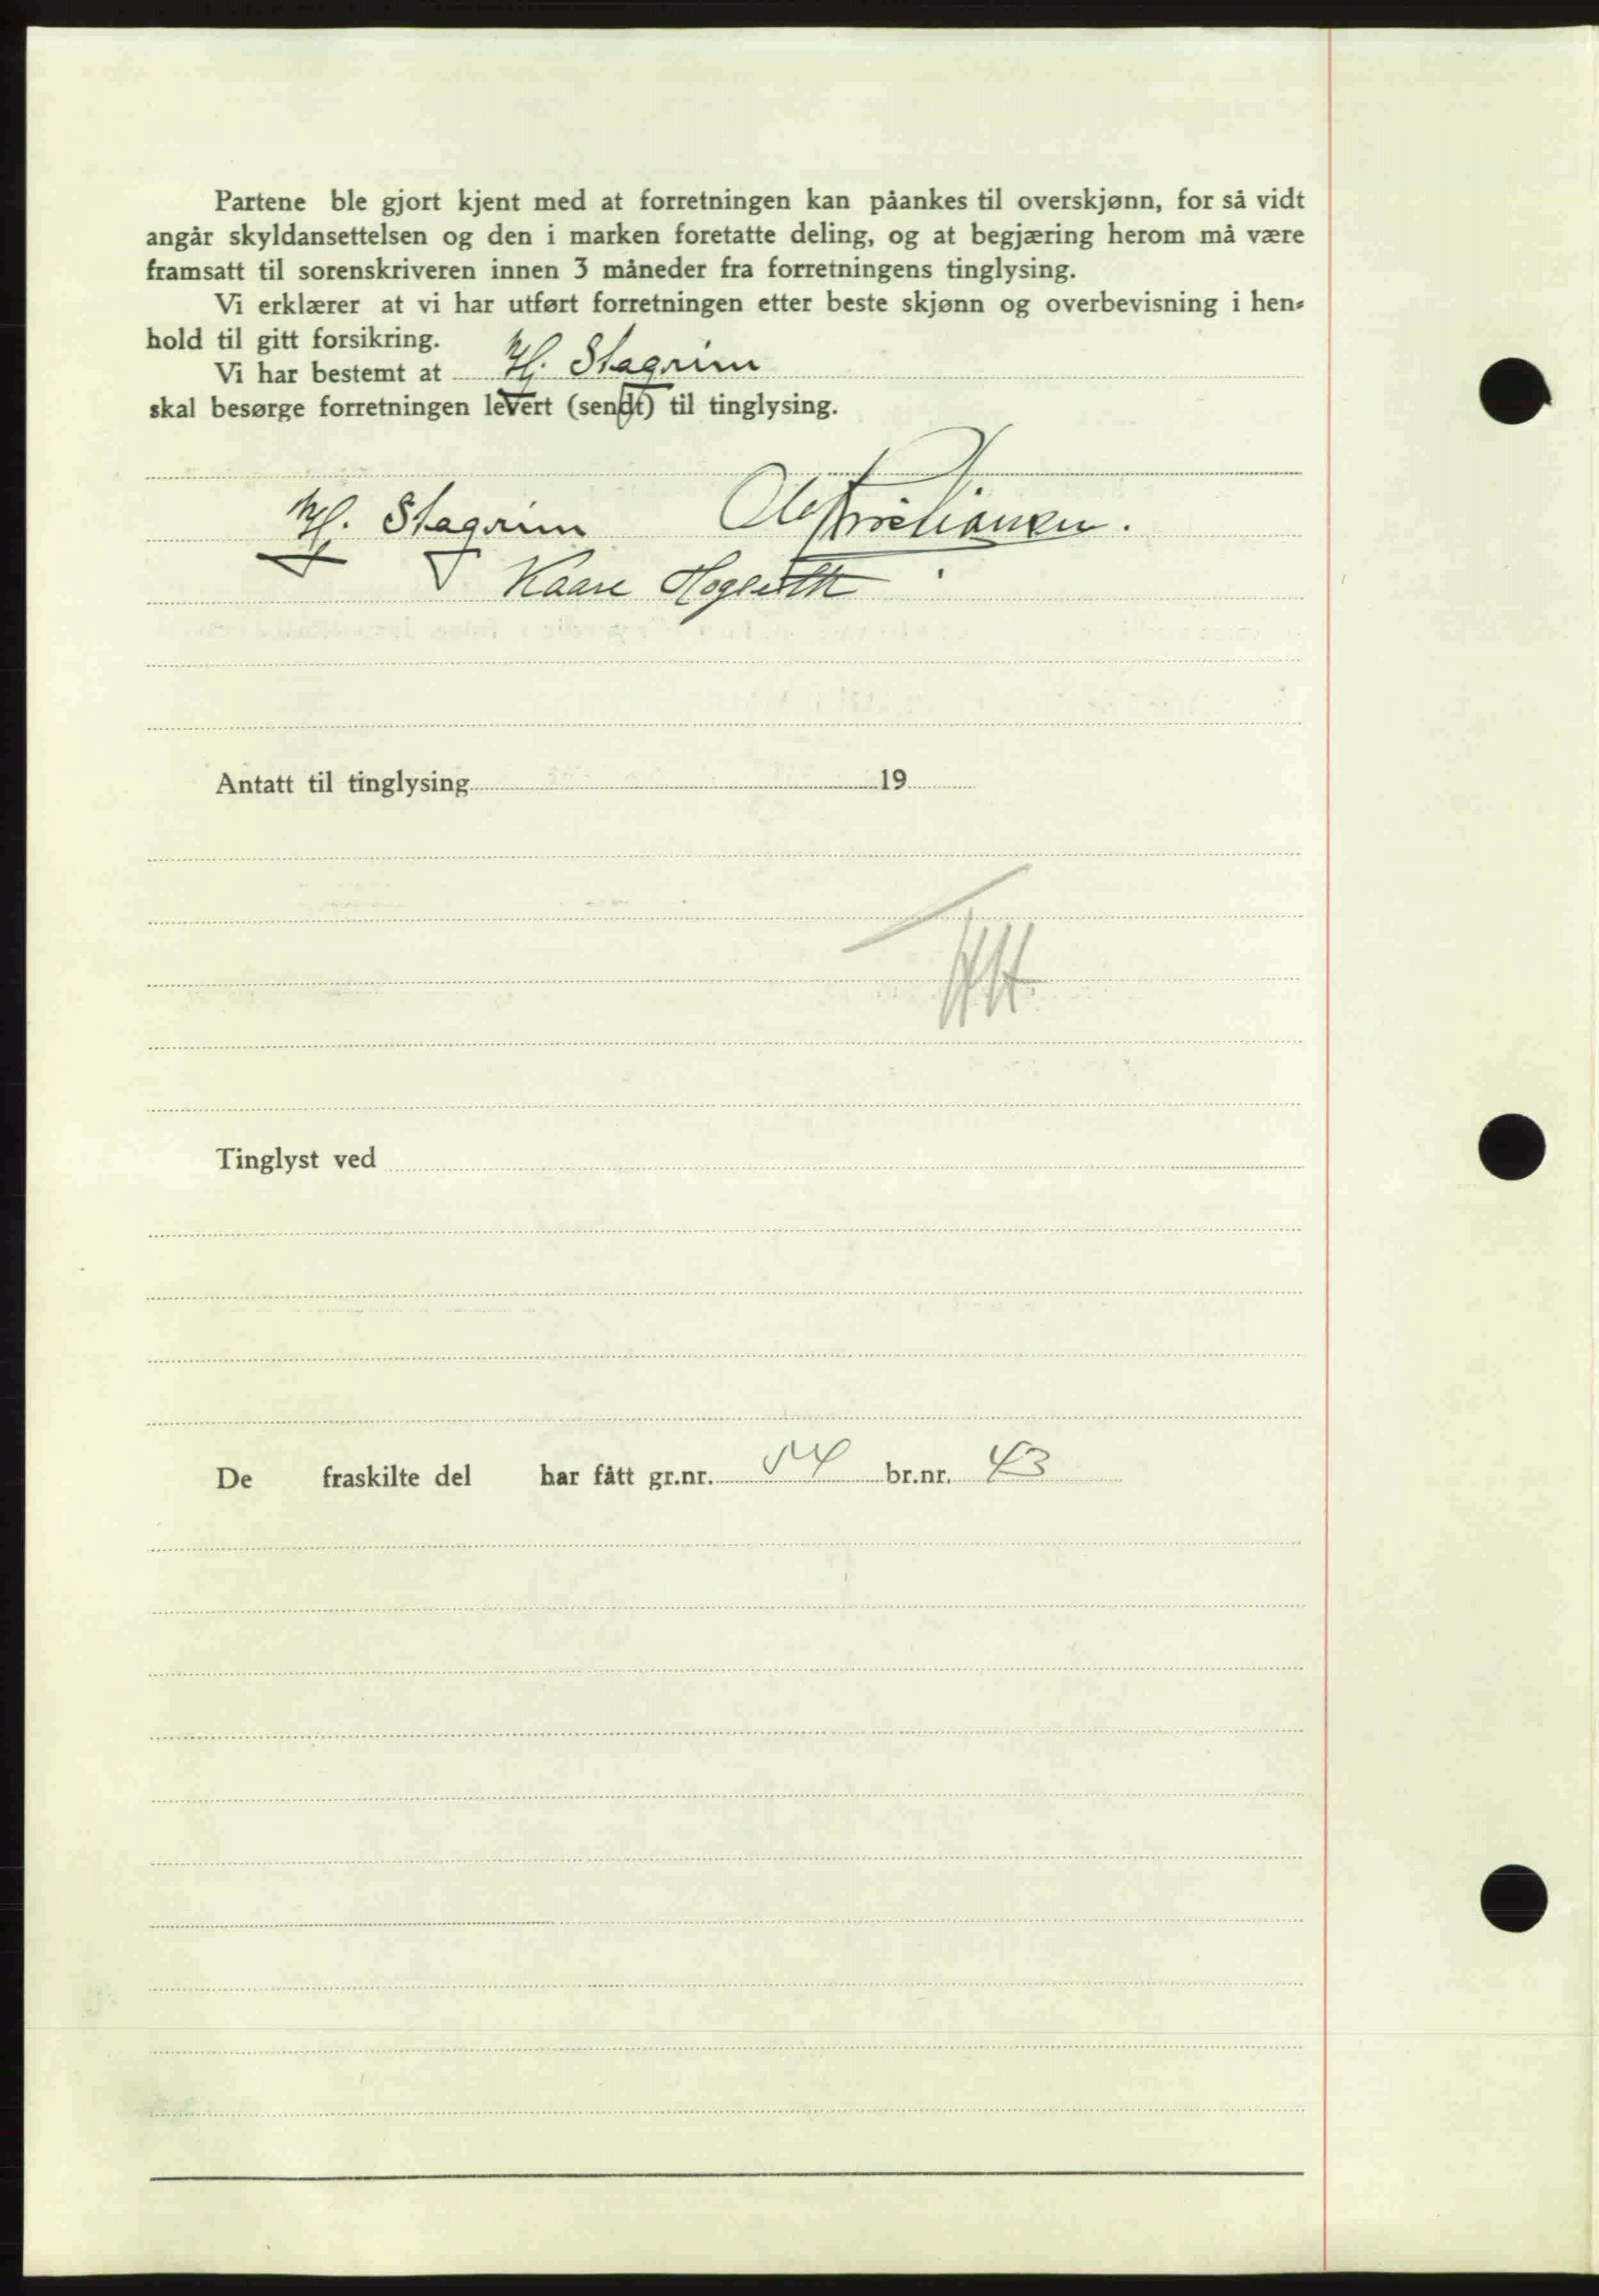 Partene ble gjort kjent med at forretningen kan påankes til overskjønn, for så vidt
angår skyldansettelsen og den i marken foretatte deling, og at begjæring herom må være
framsatt til sorenskriveren innen 3 måneder fra forretningens tinglysing.
Vi erklærer at vi har utført forretningen etter beste skjønn og overbevisning i hen-
hold til gitt forsikring.
Vi har bestemt at Hj. Skagrim
skal besørge forretningen levert (sendt) til tinglysing.
Hj. Skagrim
Kaare
Antatt til tinglysing 19
Tinglyst ved
De fraskilte del har fått gr.nr. br.nr. 43